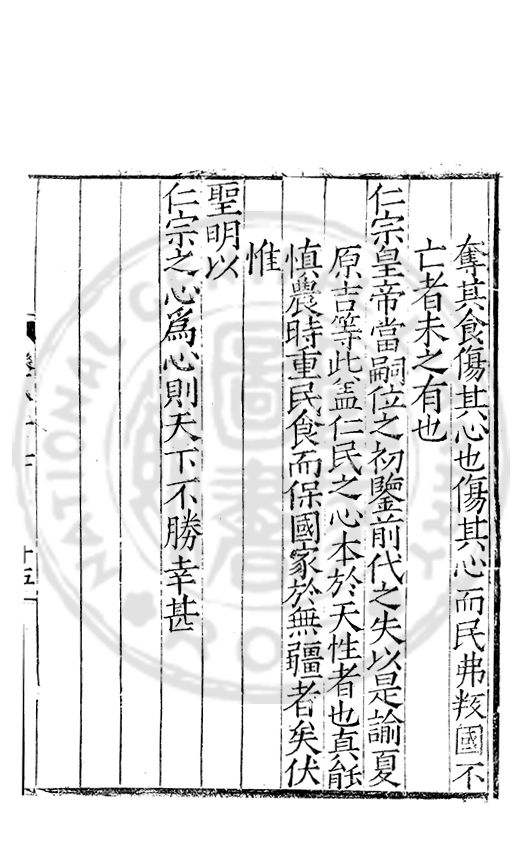 奪其食傷其心也傷其心而民弗叛國不
亡者未之有也
仁宗皇帝當嗣位之初鑒前代之失以是諭夏
原吉等此盖仁民之心本於天性者也真能
慎農時重民食而保國家於無疆者矣伏
惟
聖明以
仁宗之心為心則天下不勝幸甚
十五